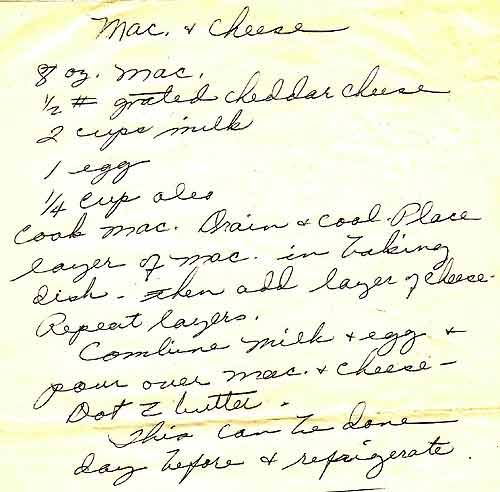 Mac. & Cheese
8 oz. mac.
1/2 # grated cheddar cheese
2 cups milk
1 egg
1/4 cup oleo
Cook mac. Drain & cool. Place
layer of mac. in baking
dish - then add layer of cheese.
Repeat layers.
Combine milk & egg &
pour over mac. & cheese -
Dot c butter.
This can be done
day before & refrigerate.